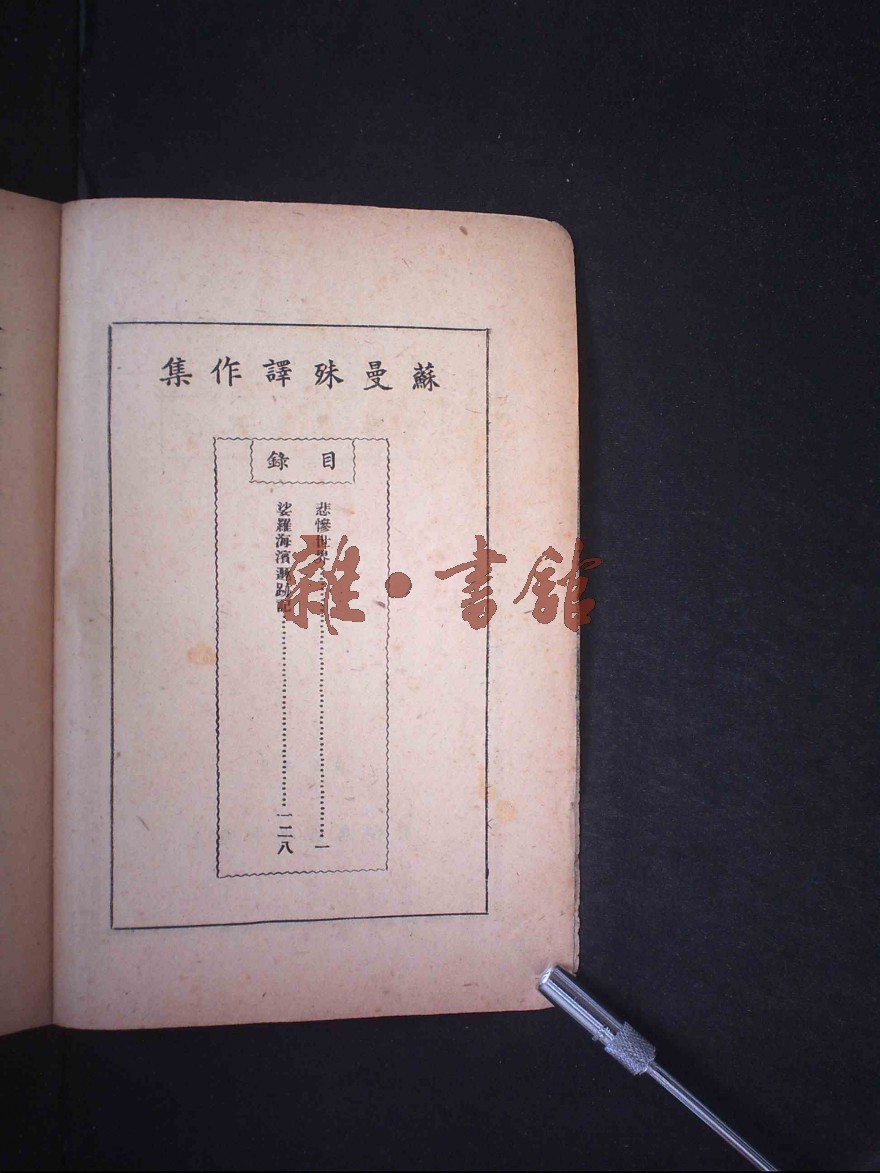 蘇曼殊譯作集
目錄
悲慘世界……一
娑羅海濱遯跡記……一二八
雜·書館